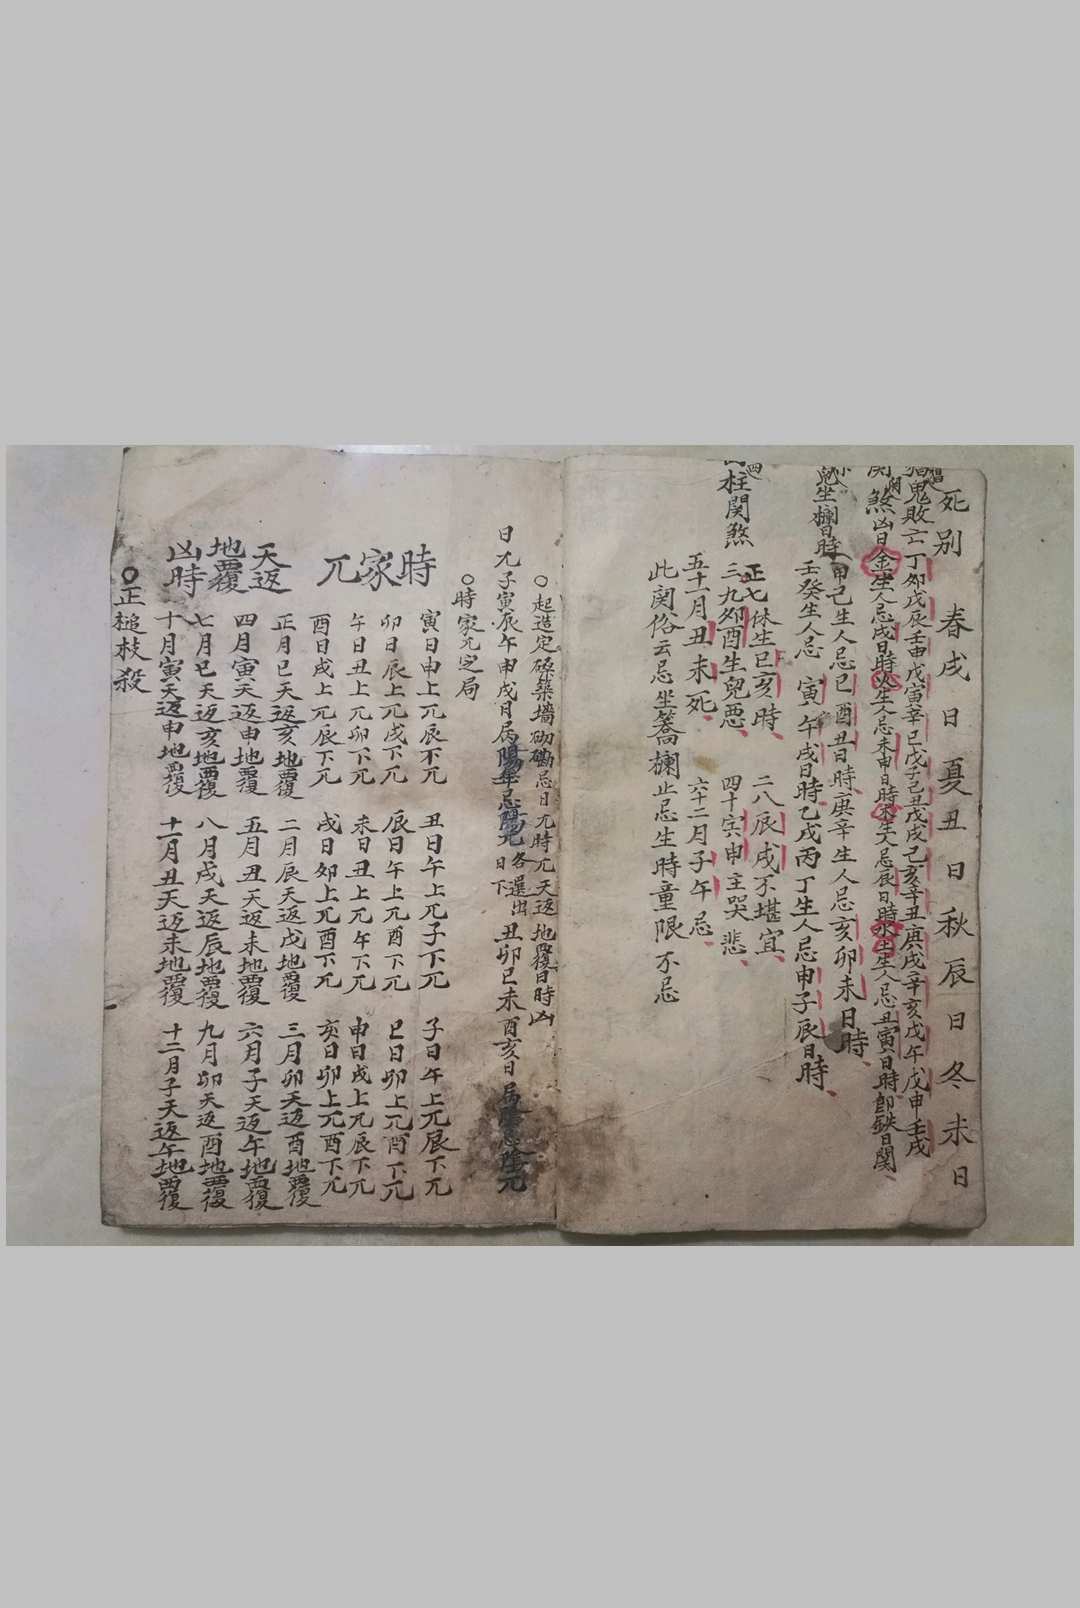 死别 春戌日夏丑日秋辰日冬未日
鬼敗亡 丁卯戊辰壬申戊寅辛巳戊子己丑戊戌己亥辛丑庚戌辛亥戊午戊申壬戌
関煞凶日 金生人忌戌日時火生人忌未申日時木生人忌辰日時水土生人忌丑寅日時即鉄日関
鬼坐欄日時 甲己生人忌巳酉丑日時庚辛生人忌亥卯未日時
壬癸生人忌寅午戌日時乙戊丙丁生人忌申子辰日時
四柱関煞
正七休生巳亥時 二八辰戌不堪宜
三九卯酉生兒悪 四十寅申主哭悲
五十一月丑未死 六十二月子午忌
此関俗云忌坐蕎欄止忌生時童限不忌
○起造定磉築墻砌磡忌日兀時兀天返地覆日時凶
日兀子寅辰午申戌月属陽年忌陽兀各選出日下丑卯巳未酉亥日属陰忌陰兀
○時家兀定局
時家兀
寅日申上兀辰下兀 丑日午上兀子下兀 子日午上兀辰下兀
卯日辰上兀戌下兀 辰日午上兀酉下兀 巳日卯上兀酉下兀
午日丑上兀卯下兀 未日丑上兀午下兀 申日戌上兀辰下兀
酉日戌上兀辰下兀 戌日卯上兀酉下兀 亥日卯上兀酉下兀
天返地覆凶時
正月巳天返亥地覆 二月辰天返戊地覆 三月卯天返酉地覆
四月寅天返申地覆 五月丑天返未地覆 六月子天返午地覆
七月巳天返亥地覆 八月戌天返辰地覆 九月卯天返酉地覆
十月寅天返申地覆 十一月丑天返未地覆 十二月子天返午地覆
○正槌枝殺